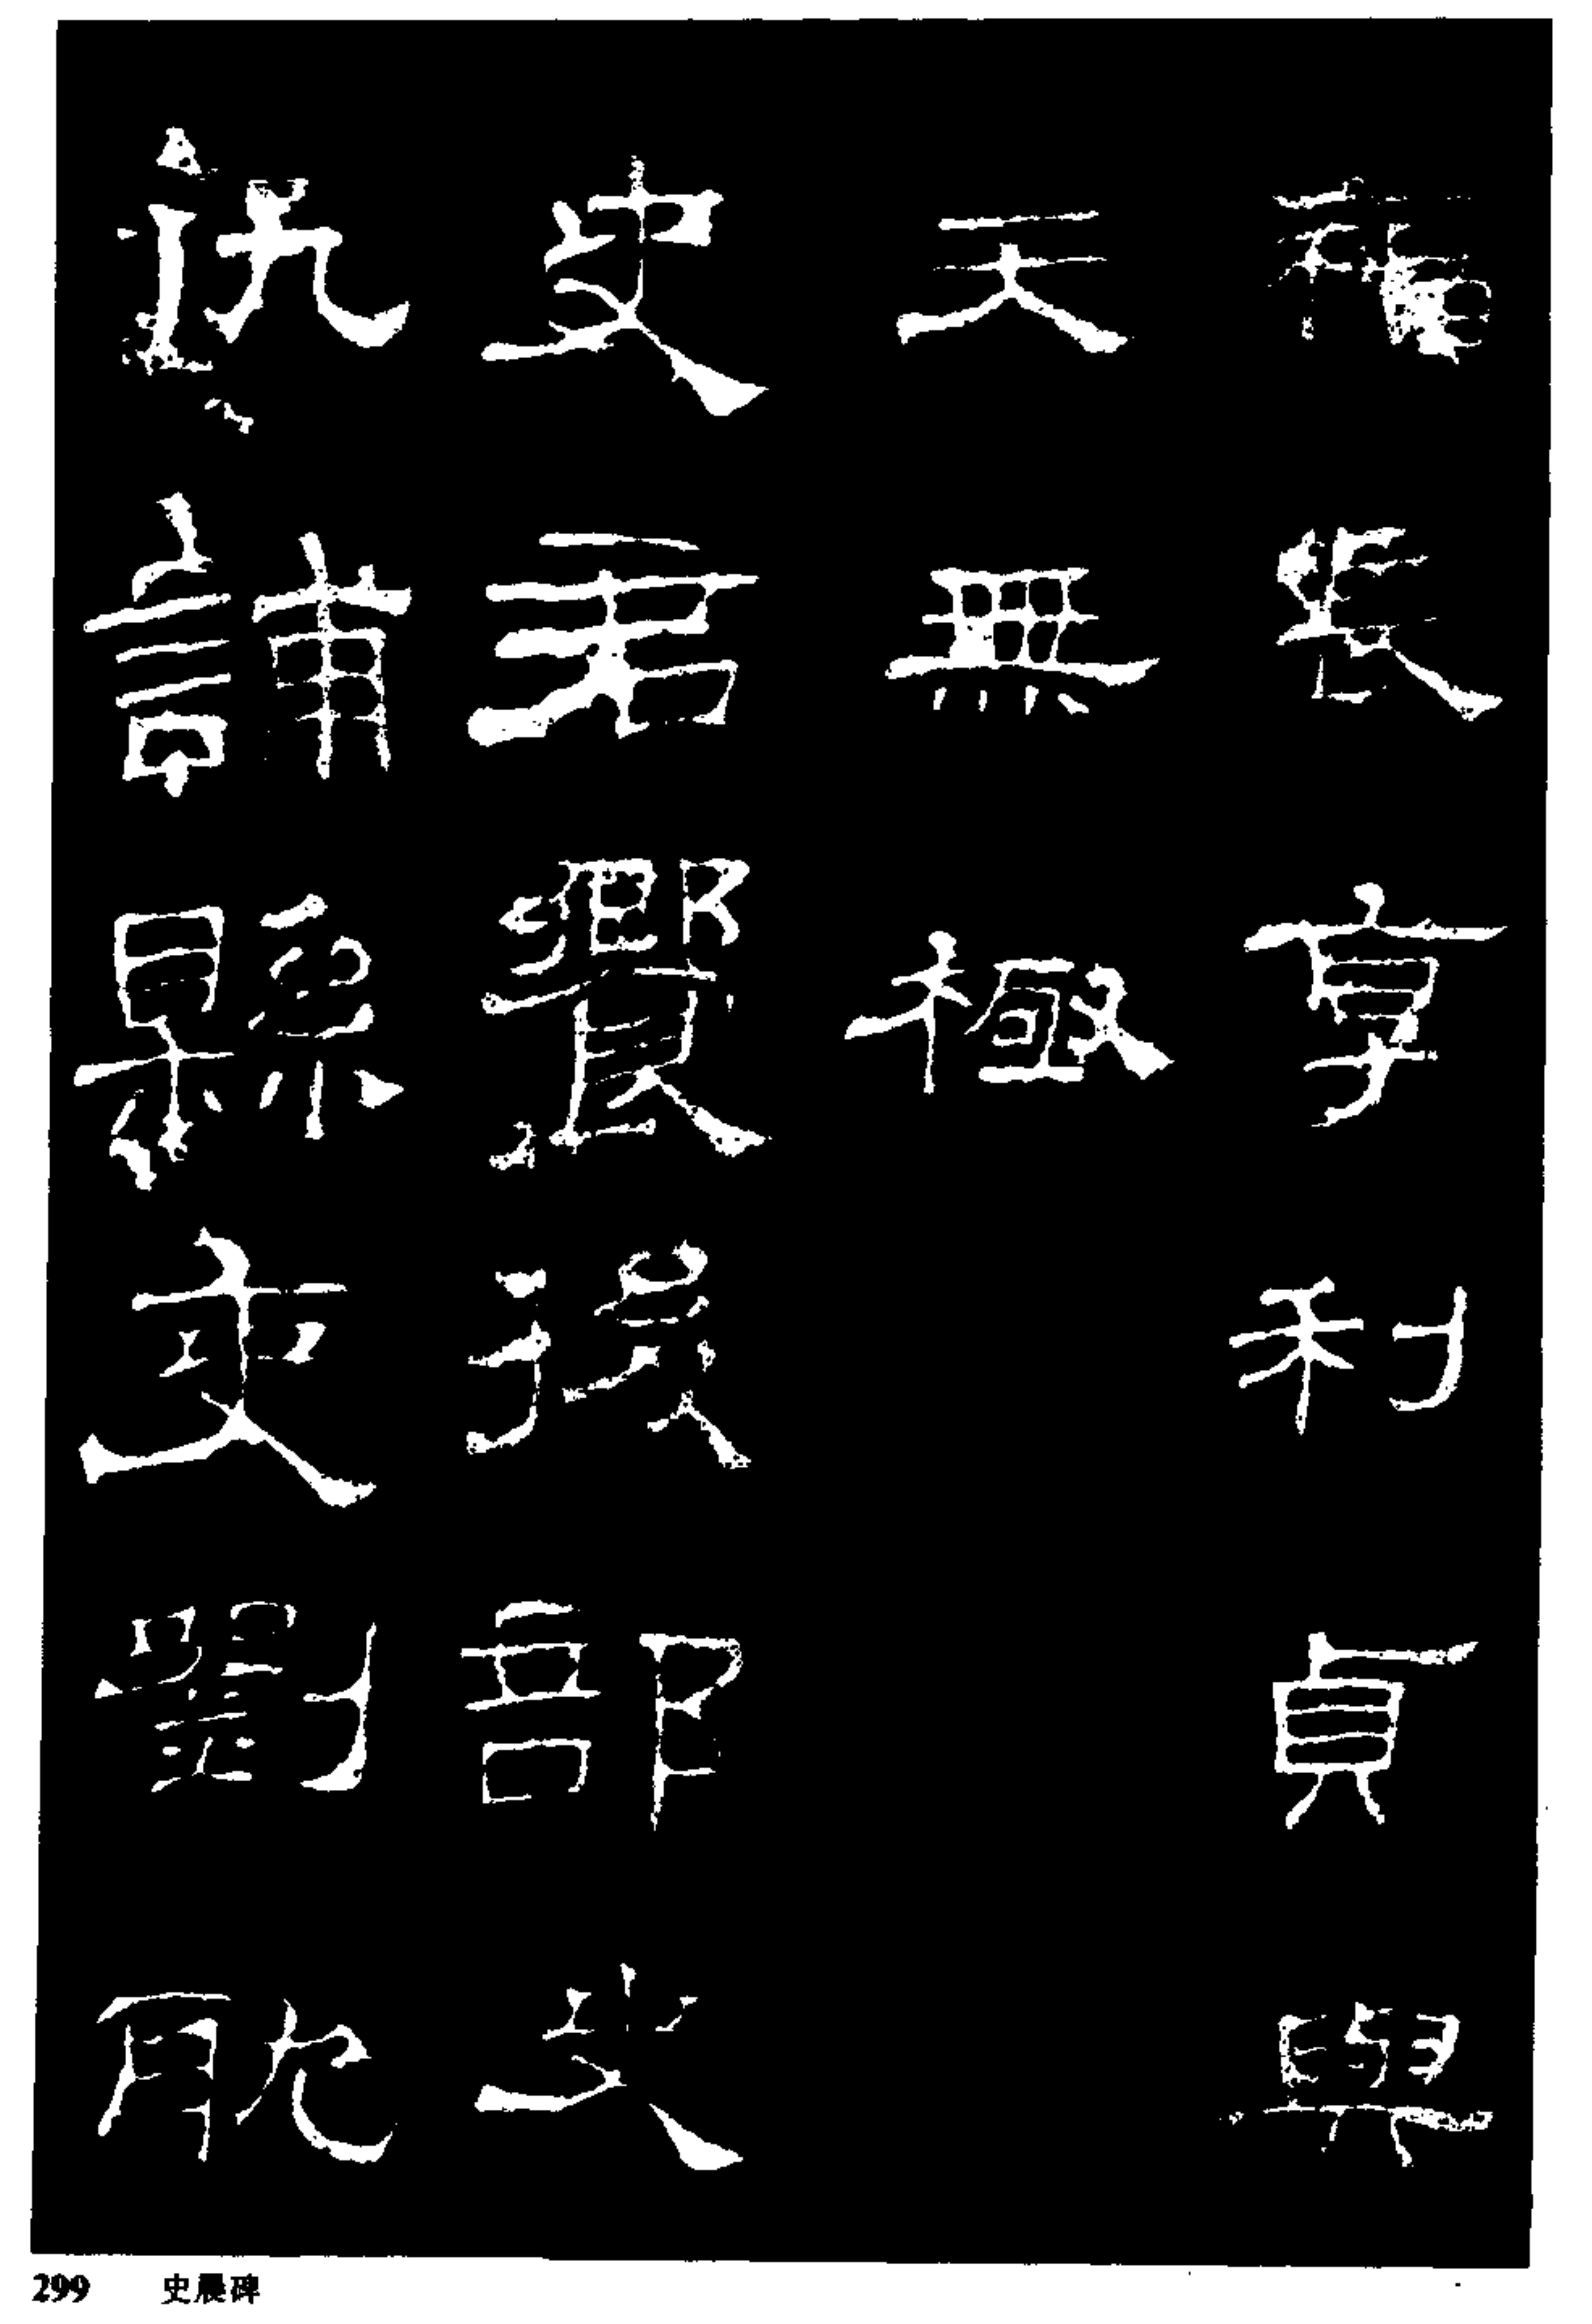 福長享利貞與
天無極
史君饗後部史
仇誧縣吏劉耽
299 史晨碑